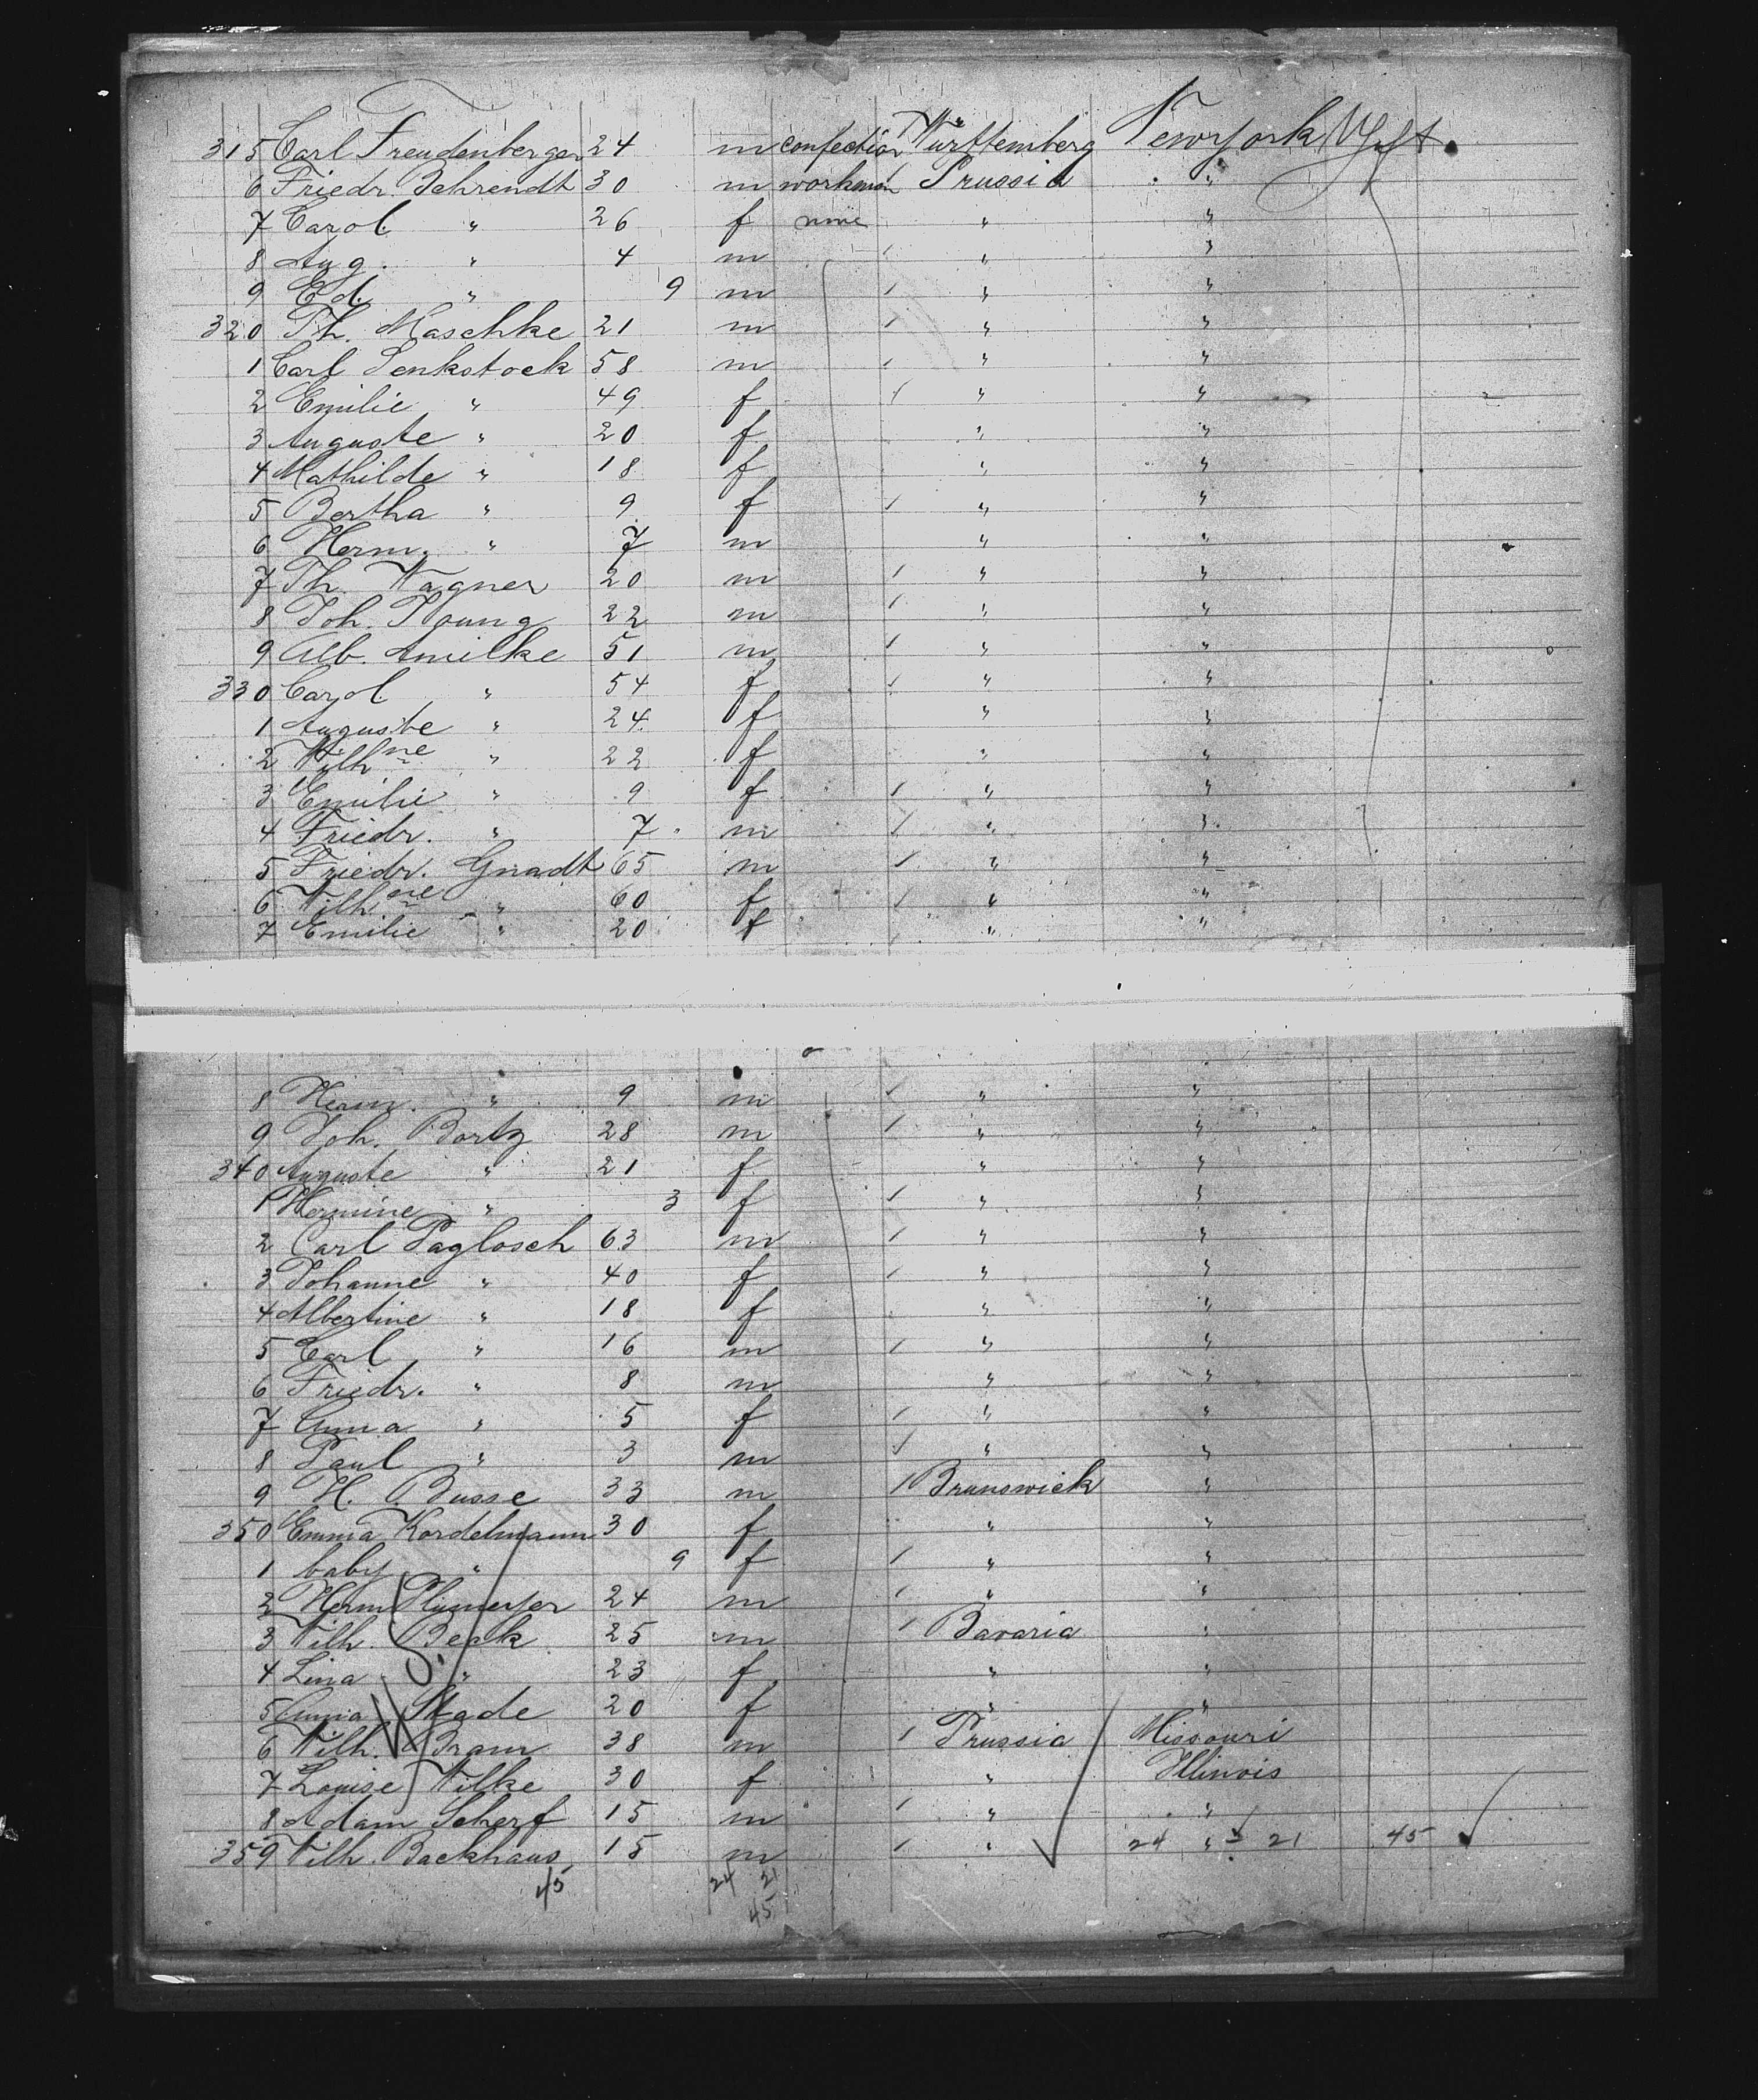 315 Carl Freudenberger 24 m confection Württemberg Newyork
6 Friedr. Behrendt 30 m workman Prussia "
7 Carol. " 26 f none " "
8 Aug. " 4 m " "
9 Ed. " 9 m " "
320 Th. Maschke 21 m " "
1 Carl Senkstock 58 m " "
2 Emilie " 49 f " "
3 Auguste " 20 f " "
4 Mathilde " 18 f " "
5 Bertha " 9 f " "
6 Herm. " 7 m " "
7 Th. Wagner 20 m " "
8 Joh. Young 22 m " "
9 Alb. Amilke 51 m " "
330 Carol. " 54 f " "
1 Auguste " 24 f " "
2 Wilhne " 22 f " "
3 Emilie " 9 f " "
4 Friedr. " 7 m " "
5 Friedr. Gnadt 65 m " "
6 Wilhne " 60 f " "
7 Emilie " 20 f " "
8 Herm. " 9 m " "
9 Joh. Bortz 28 m " "
340 Auguste " 21 f " "
1 Hermine " 3 f " "
2 Carl Paglosch 63 m " "
3 Johanne " 40 f " "
4 Albertine " 18 f " "
5 Carl " 16 m " "
6 Friedr. " 8 m " "
7 Anna " 5 f " "
8 Paul " 3 m " "
9 H. Busse 33 m Brunswick "
350 Emma Kordelmann 30 f " "
1 baby " 9 f " "
2 Herm 24 m " "
3 Wilh. Beak 25 m Bavaria "
4 Lina " 23 f " "
5 Anna Stade 20 f " "
6 Wilh. Braun 38 m Prussia Missouri
7 Louise Wilke 30 f " Illinois
8 Adam Scherf 15 m " "
359 Wilh. Backhaus 15 m " 24 " 21 45
45 24 21
45